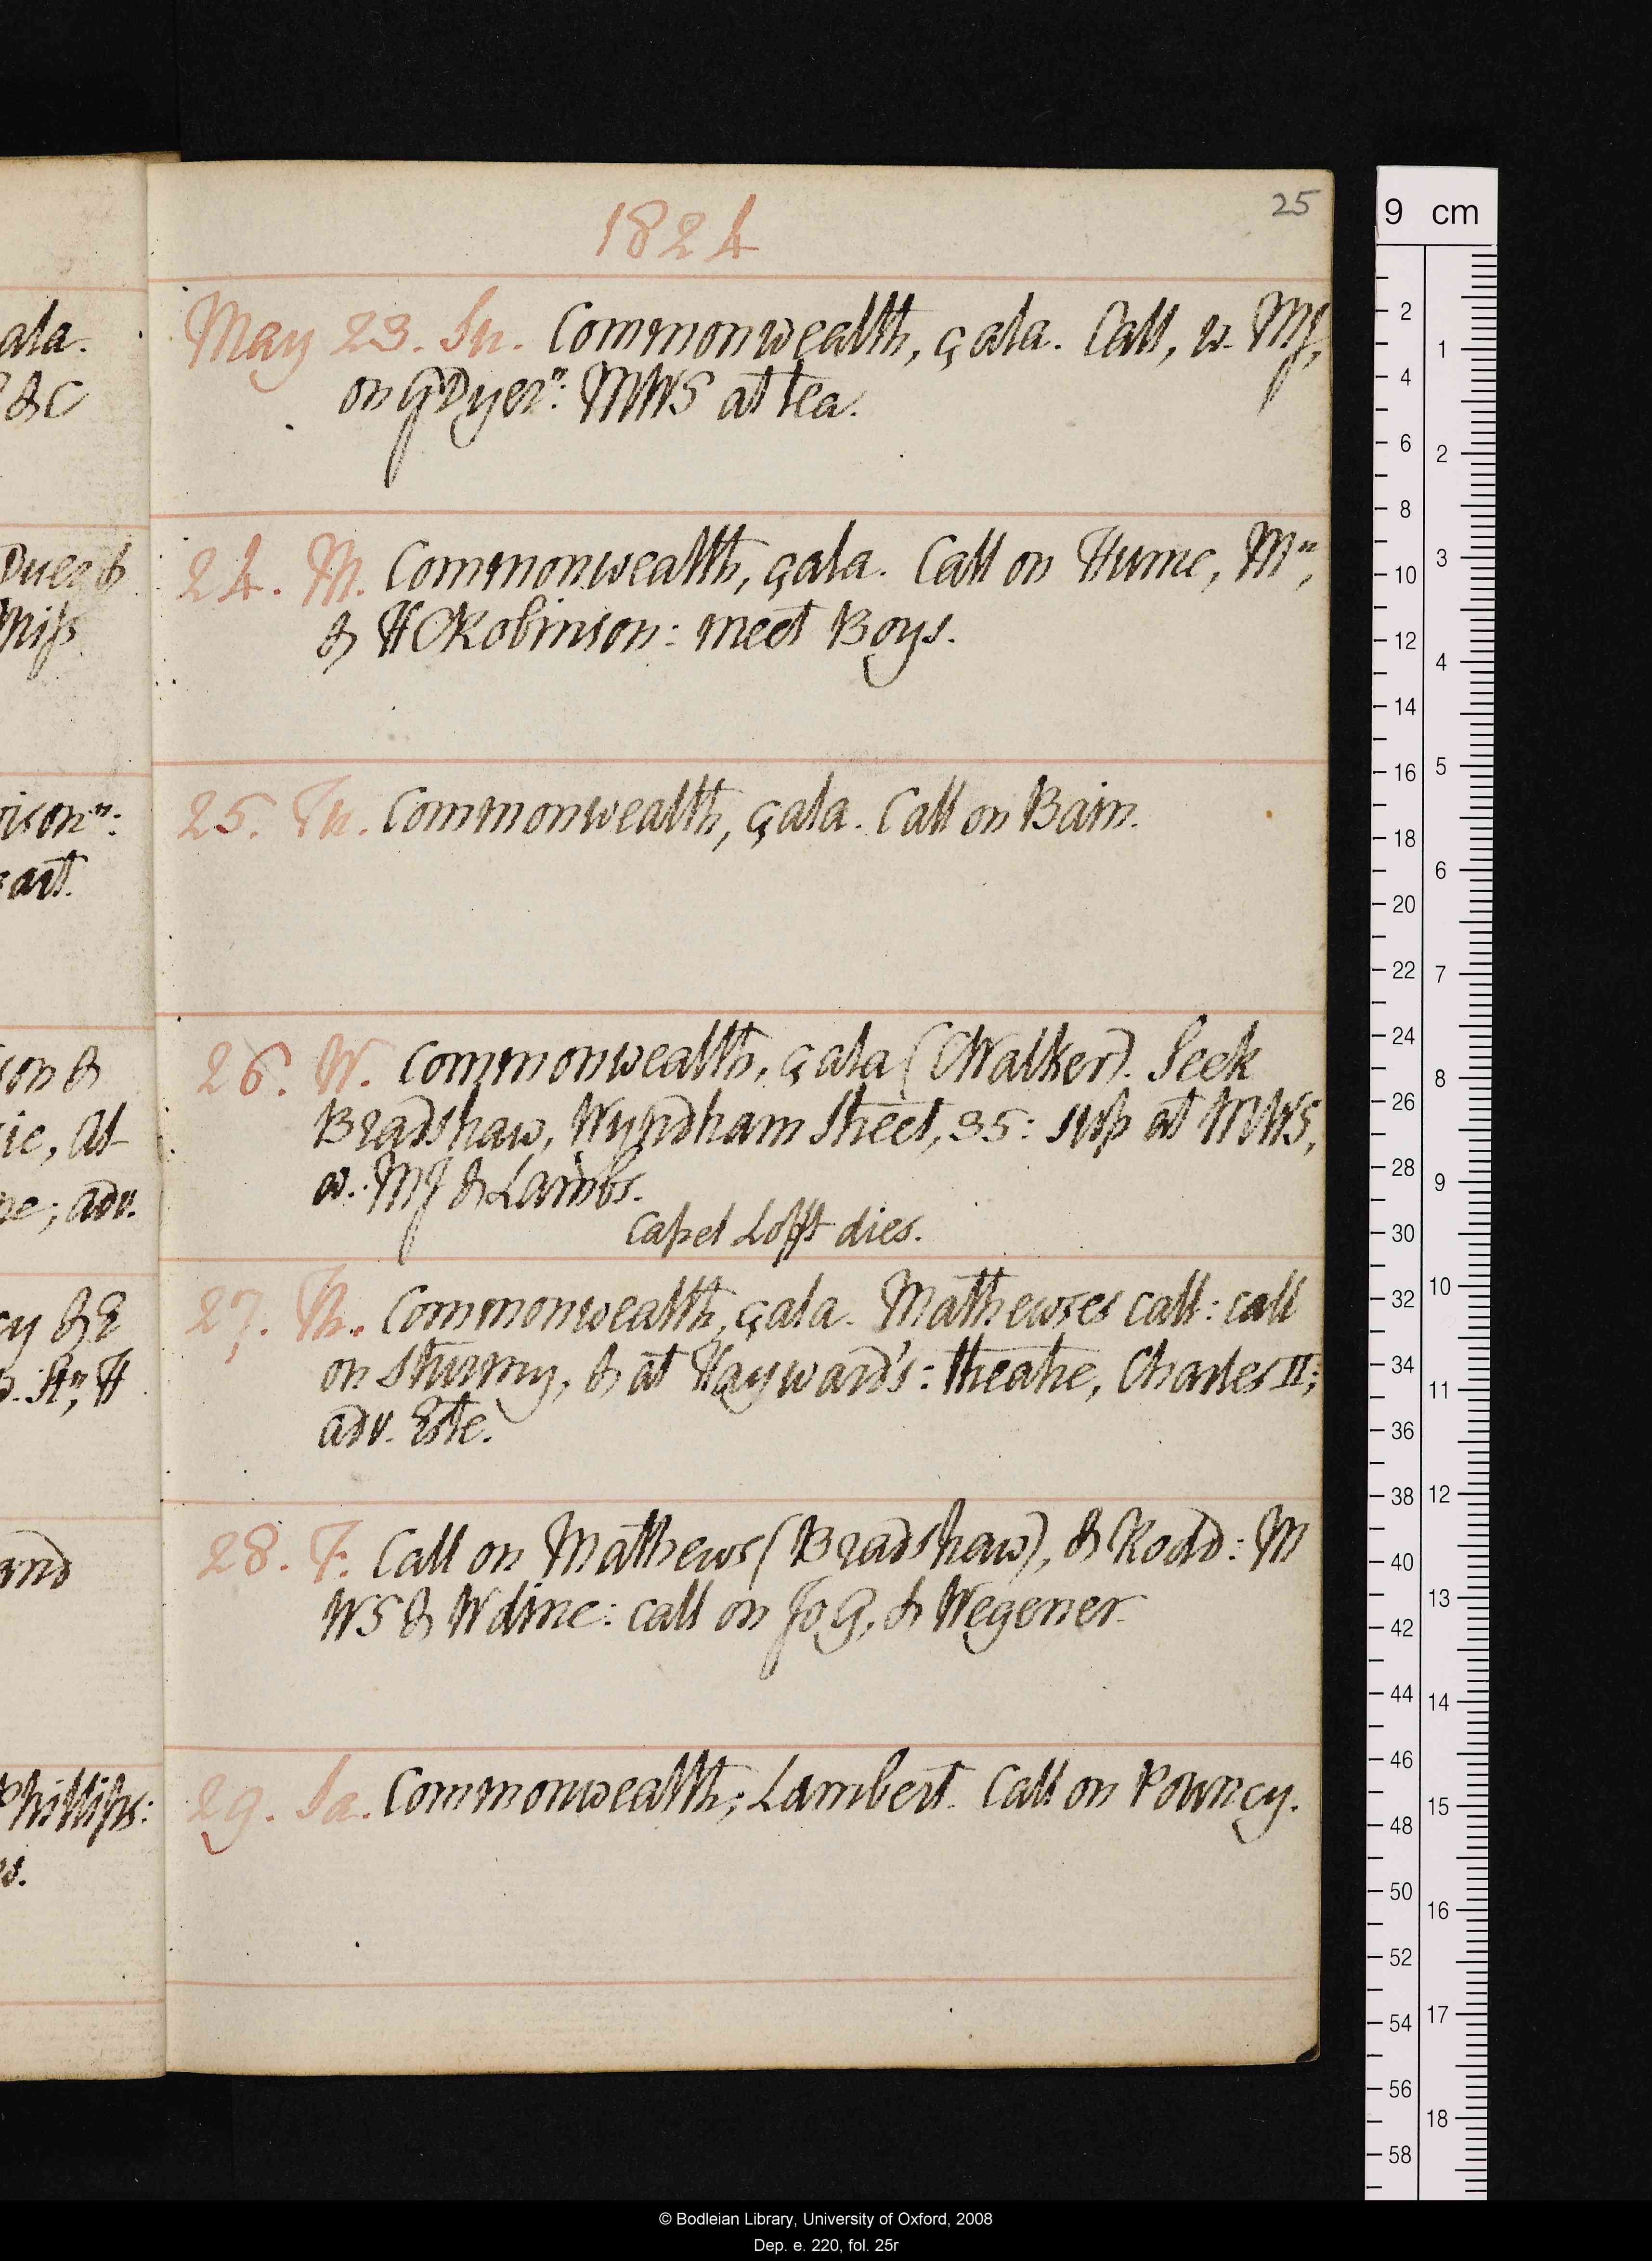 25
1824
May 23. Su. Commonwealth, çala. Call, w. MJ,
on GDyer n: MWS at tea.
24. M. Commonwealth, çala. Call on Hume, M n,
& HCRobinson: meet Boys.
25. Tu. Commonwealth, çala. Call on Bain.
26. W. Commonwealth, çala (CWalker). Seek
Bradshaw, Wyndham Street, 35: sup at MWS,
w. MJ & Lambs.
Capel Lofft dies.
27. Th. Commonwealth, çala. Mathewses call: call
on Sturmy, & at Hayward's: theatre, Charles II;
adv. Este.
28. F. Call on Mathews (Bradshaw), & Rodd: M
WS & W dine: call on JoG, & Wegener.
29. Sa. Commonwealth; Lambert. Call on Pouncy.
ala.
& C
Miss
ison n:
art.
son &
ie, at
pe; adv.
cy & E
and
Phillips:
9 cm
2
4
6
8
10
12
14
16
18
20
22
24
26
28
30
32
34
36
38
40
42
44
46
48
50
52
54
56
58
1
2
3
4
5
6
7
8
9
10
11
12
13
14
15
16
17
18
© Bodleian Library, University of Oxford, 2008
Dep. e. 220, fol. 25r